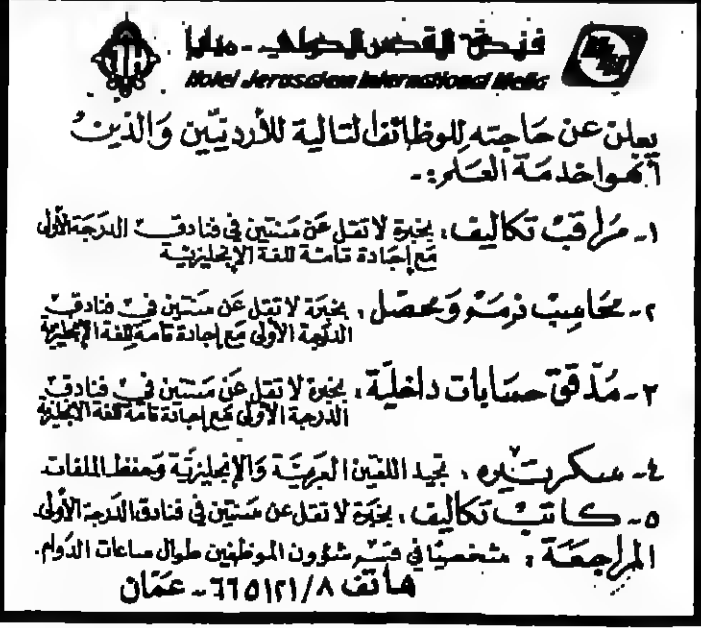 فندق القدس الدولي - ميليا
Hotel Jerusalem International Melia
يعلن عن حاجته للوظائف التالية للأردنيين والذين
أنهوا خدمة العلم :-
١- مراقب تكاليف ، بخبرة لا تقل عن سنتين في فنادق الدرجة الأولى
مع إجادة تامة للغة الإنجليزية
٢- محاسب ذمم ومحصل ، بخبرة لا تقل عن سنتين في فنادق
الدرجة الأولى مع إجادة تامة للغة الإنجليزية
٣- مدققي حسابات داخلية ، بخبرة لا تقل عن سنتين في فنادق
الدرجة الأولى مع إجادة تامة للغة الإنجليزية
٤- سكرتيره ، تجيد اللغتين العربية والإنجليزية وحفظ الملفات
٥- كاتب تكاليف ، بخبرة لا تقل عن سنتين في فنادق الدرجة الأولى.
المراجعة : شخصيًا في قسم شؤون الموظفين طوال ساعات الدوام.
هاتف ٦٦٥١٢١/٨ - عمان